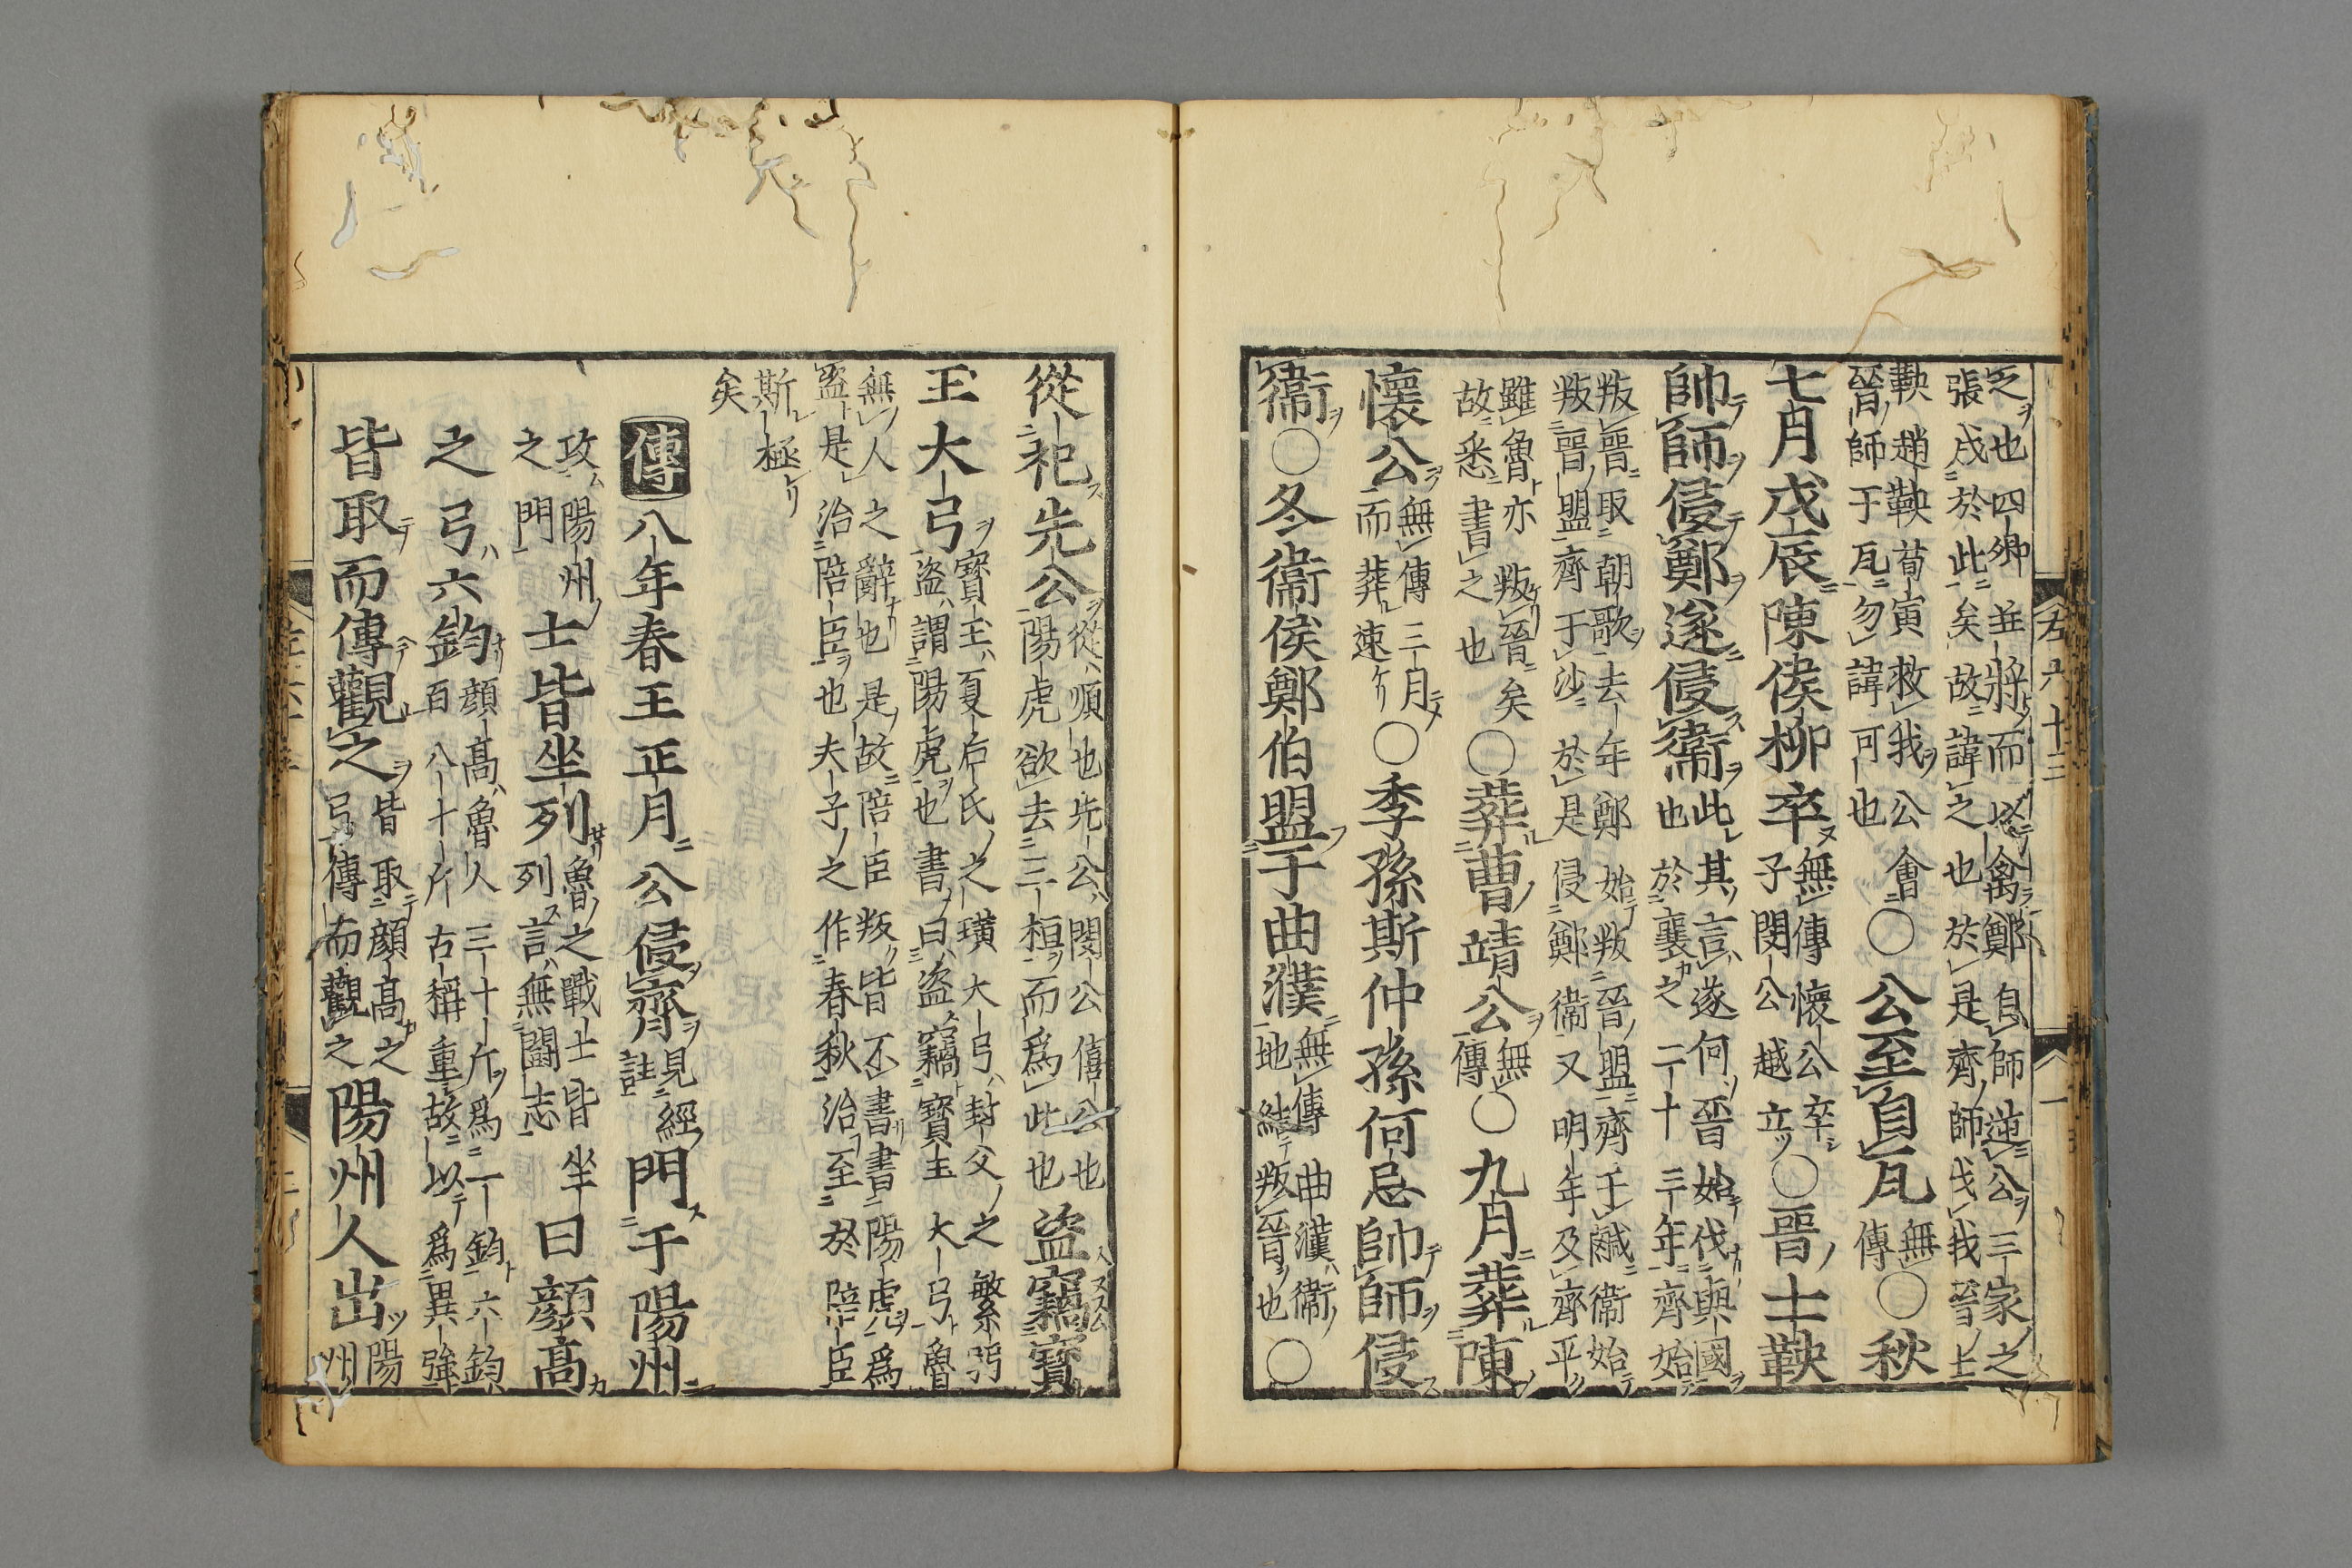 之也四卿並將而以禽鄭自師逆公三家之
張成於此矣故諱之也於是齊師伐我晉上
鞅趙鞅荀寅救我公會
晉師于瓦勿諱可也
○公至自瓦
無
傳
○秋
七月戊辰陳侯柳卒
無傳懷公卒
子閔公越立
○晉士鞅
帥師侵鄭遂侵衞
此其言遂何晉始伐與國
也於襄之二十三年齊始
叛晉取朝歌去年鄭始叛晉盟齊于鹹衞始
叛晉盟齊于沙於是侵鄭衞又明年及齊平
雖魯亦叛晉矣
故悉書之也
○葬曹靖公
無
傳
○九月葬陳
懷公
無傳三月
而葬速
○季孫斯仲孫何忌帥師侵
衞○冬衞侯鄭伯盟于曲濮
無傳曲濮衞
地結叛晉也
○
從祀先公
從順也先公閔公僖公也
陽虎欲去三桓而爲此也
盜竊寶
玉大弓
寶玉夏后氏之璜大弓封父之繁弱
盜謂陽虎也書曰盜竊寶玉大弓魯
無人之辭也是故陪臣叛皆不書書陽虎爲
盜是治陪臣也夫子之作春秋治至於陪臣
斯極
矣
傳八年春王正月公侵齊
見經
註
門于陽州
攻陽州
之門
士皆坐列
魯之戰士皆坐
列言無鬪志
曰顏高
之弓六鈞
顏高魯人三十斤爲一鈞六鈞
百八十斤古稱重故以爲異強
皆取而傳觀之
皆取顏高之
弓傳而觀之
陽州人出
陽
州